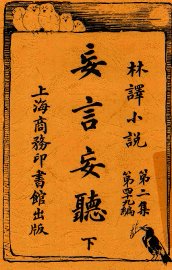 林譯小説
第二集
第四九編
妄言妄聽
下
上海商務印書館出版